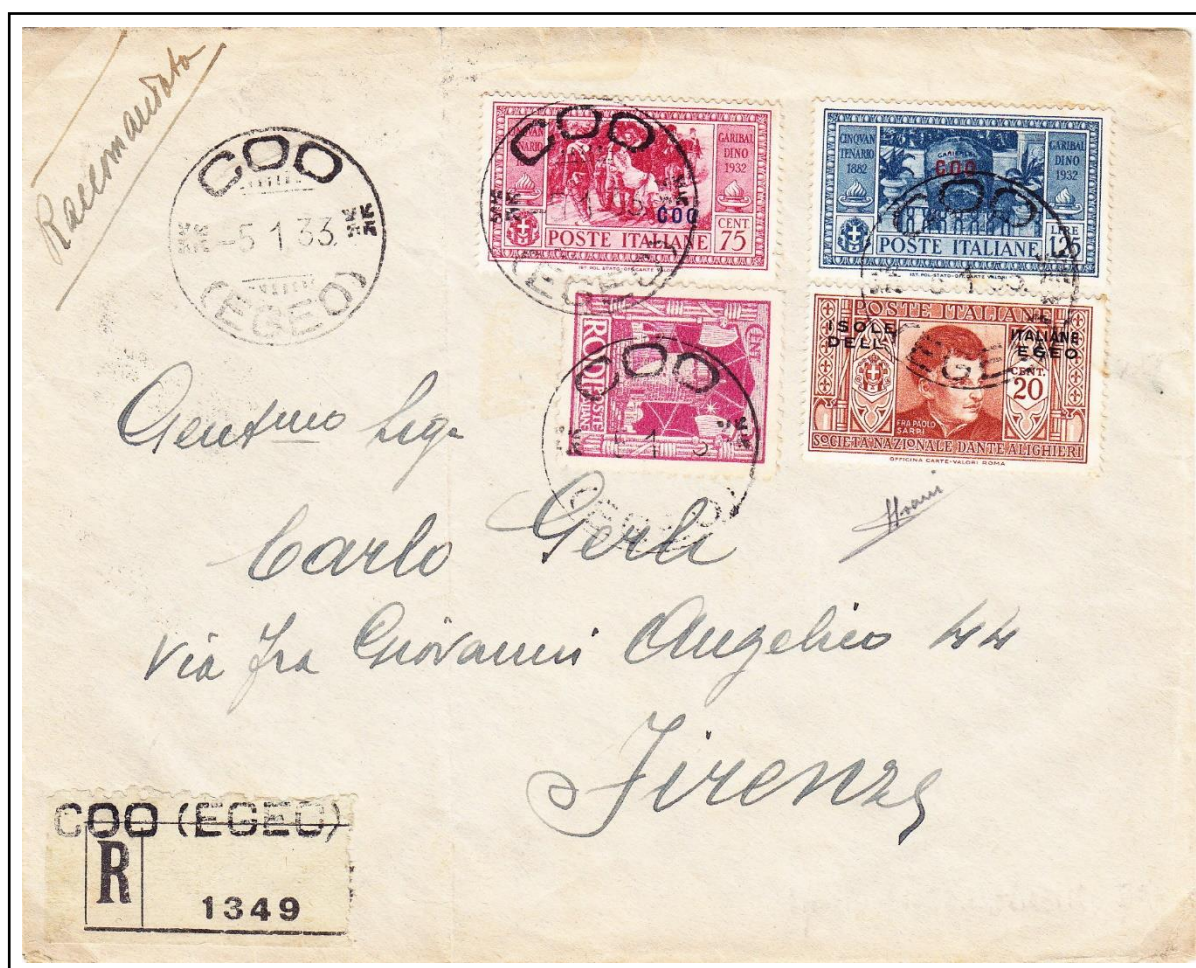 Raccomandata
COO
-5 1 33.
(EGEO)
CINQVAN
TENARIO
1882
GARIBAL
DINO
1932
COO
CENT.
75
POSTE ITALIANE
COO
(EGEO)
CINQVAN
TENARIO
1882
GARIBAL
DINO
1932
COO
LIRE
1,25
POSTE ITALIANE
COO
CENT
RODI
POSTE
ITALIANE
COO
(EGEO)
POSTE ITALIANE
ISOLE ITALIANE
DELL' EGEO
CENT.
20
FRA PAOLO
SARPI
SOCIETÀ NAZIONALE DANTE ALIGHIERI
OFFICINA CARTE-VALORI ROMA
Gent.mo Sig.
Carlo Gerli
Via Fra Giovanni Angelico 44
Firenze
COO (EGEO)
R
1349